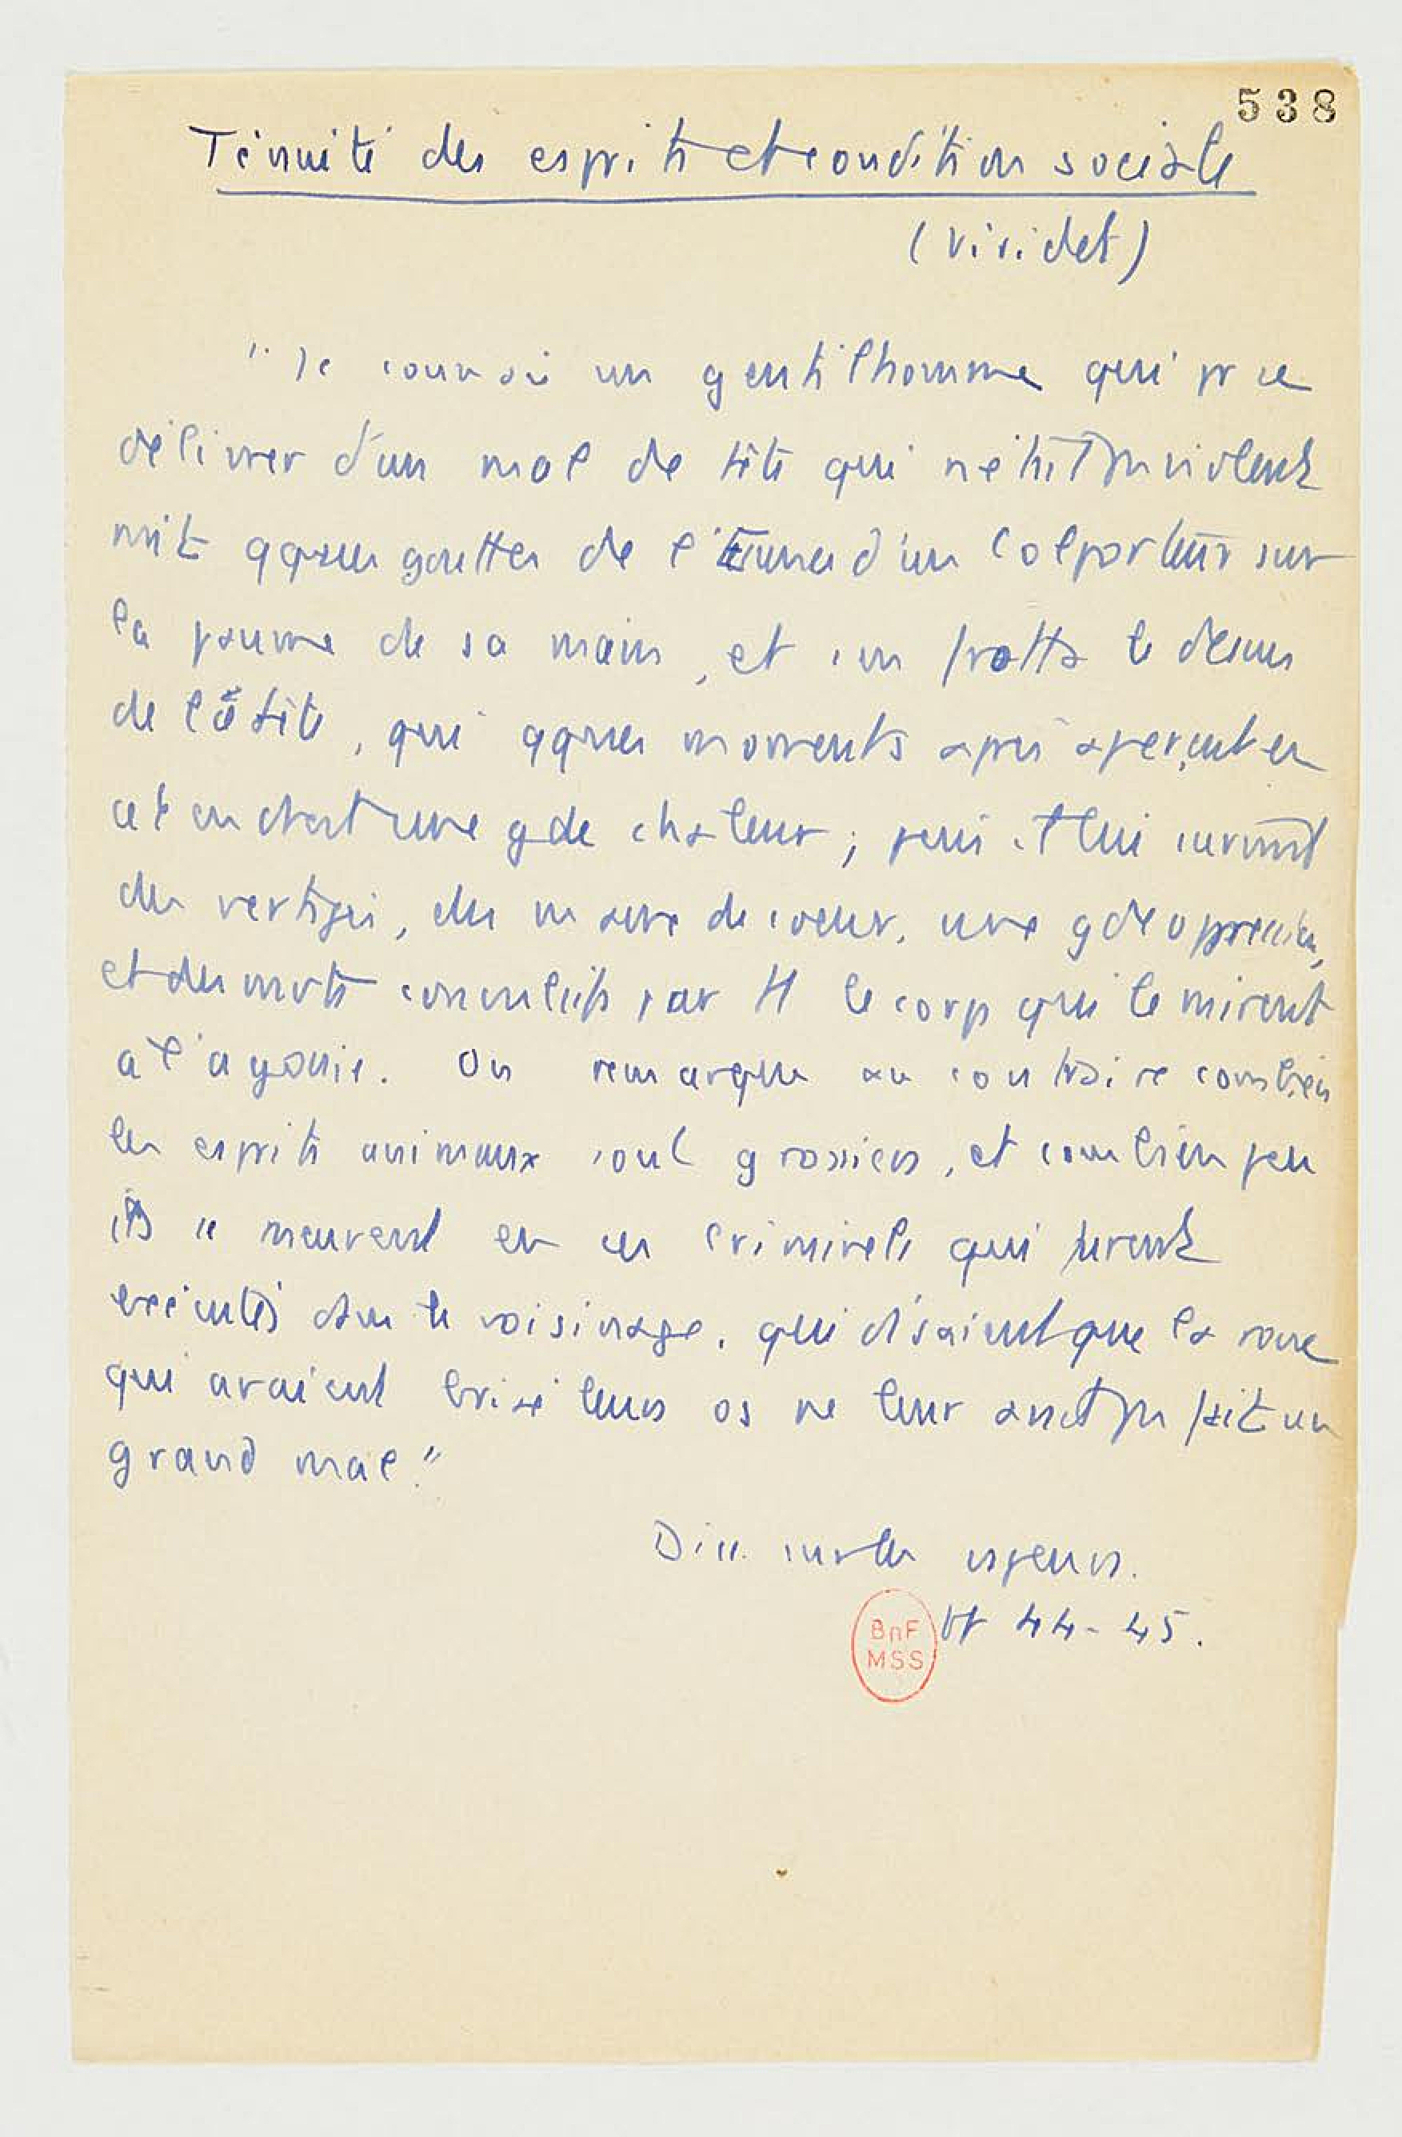 538
Ténuité des esprits et condition sociale
(Viridet)
"Je connois un gentilhomme qui pr se
délivrer d'un mal de tête qui n'était pas violent
mit qques gouttes de l' d'un colporteur sur
la paume de sa main, et en frotta le dessus
de la tête, qui qques moments après aperçut en
cet endroit une gde chaleur ; puis il lui
des vertiges, des de coeur, une gde oppression,
et des mvts convulsifs par tt le corps qui le mirent
à l'agonie. On remarque au contraire combien
les esprits animaux sont grossiers, et combien peu
ils se meuvent en ces criminels qui furent
exécutés dans le voisinage, qui disaient que la roue
qui avaient brisé leurs os ne leur avait pas fait un
grand mal."
Diss. sur les vapeurs.
44-45.
BnF
MSS